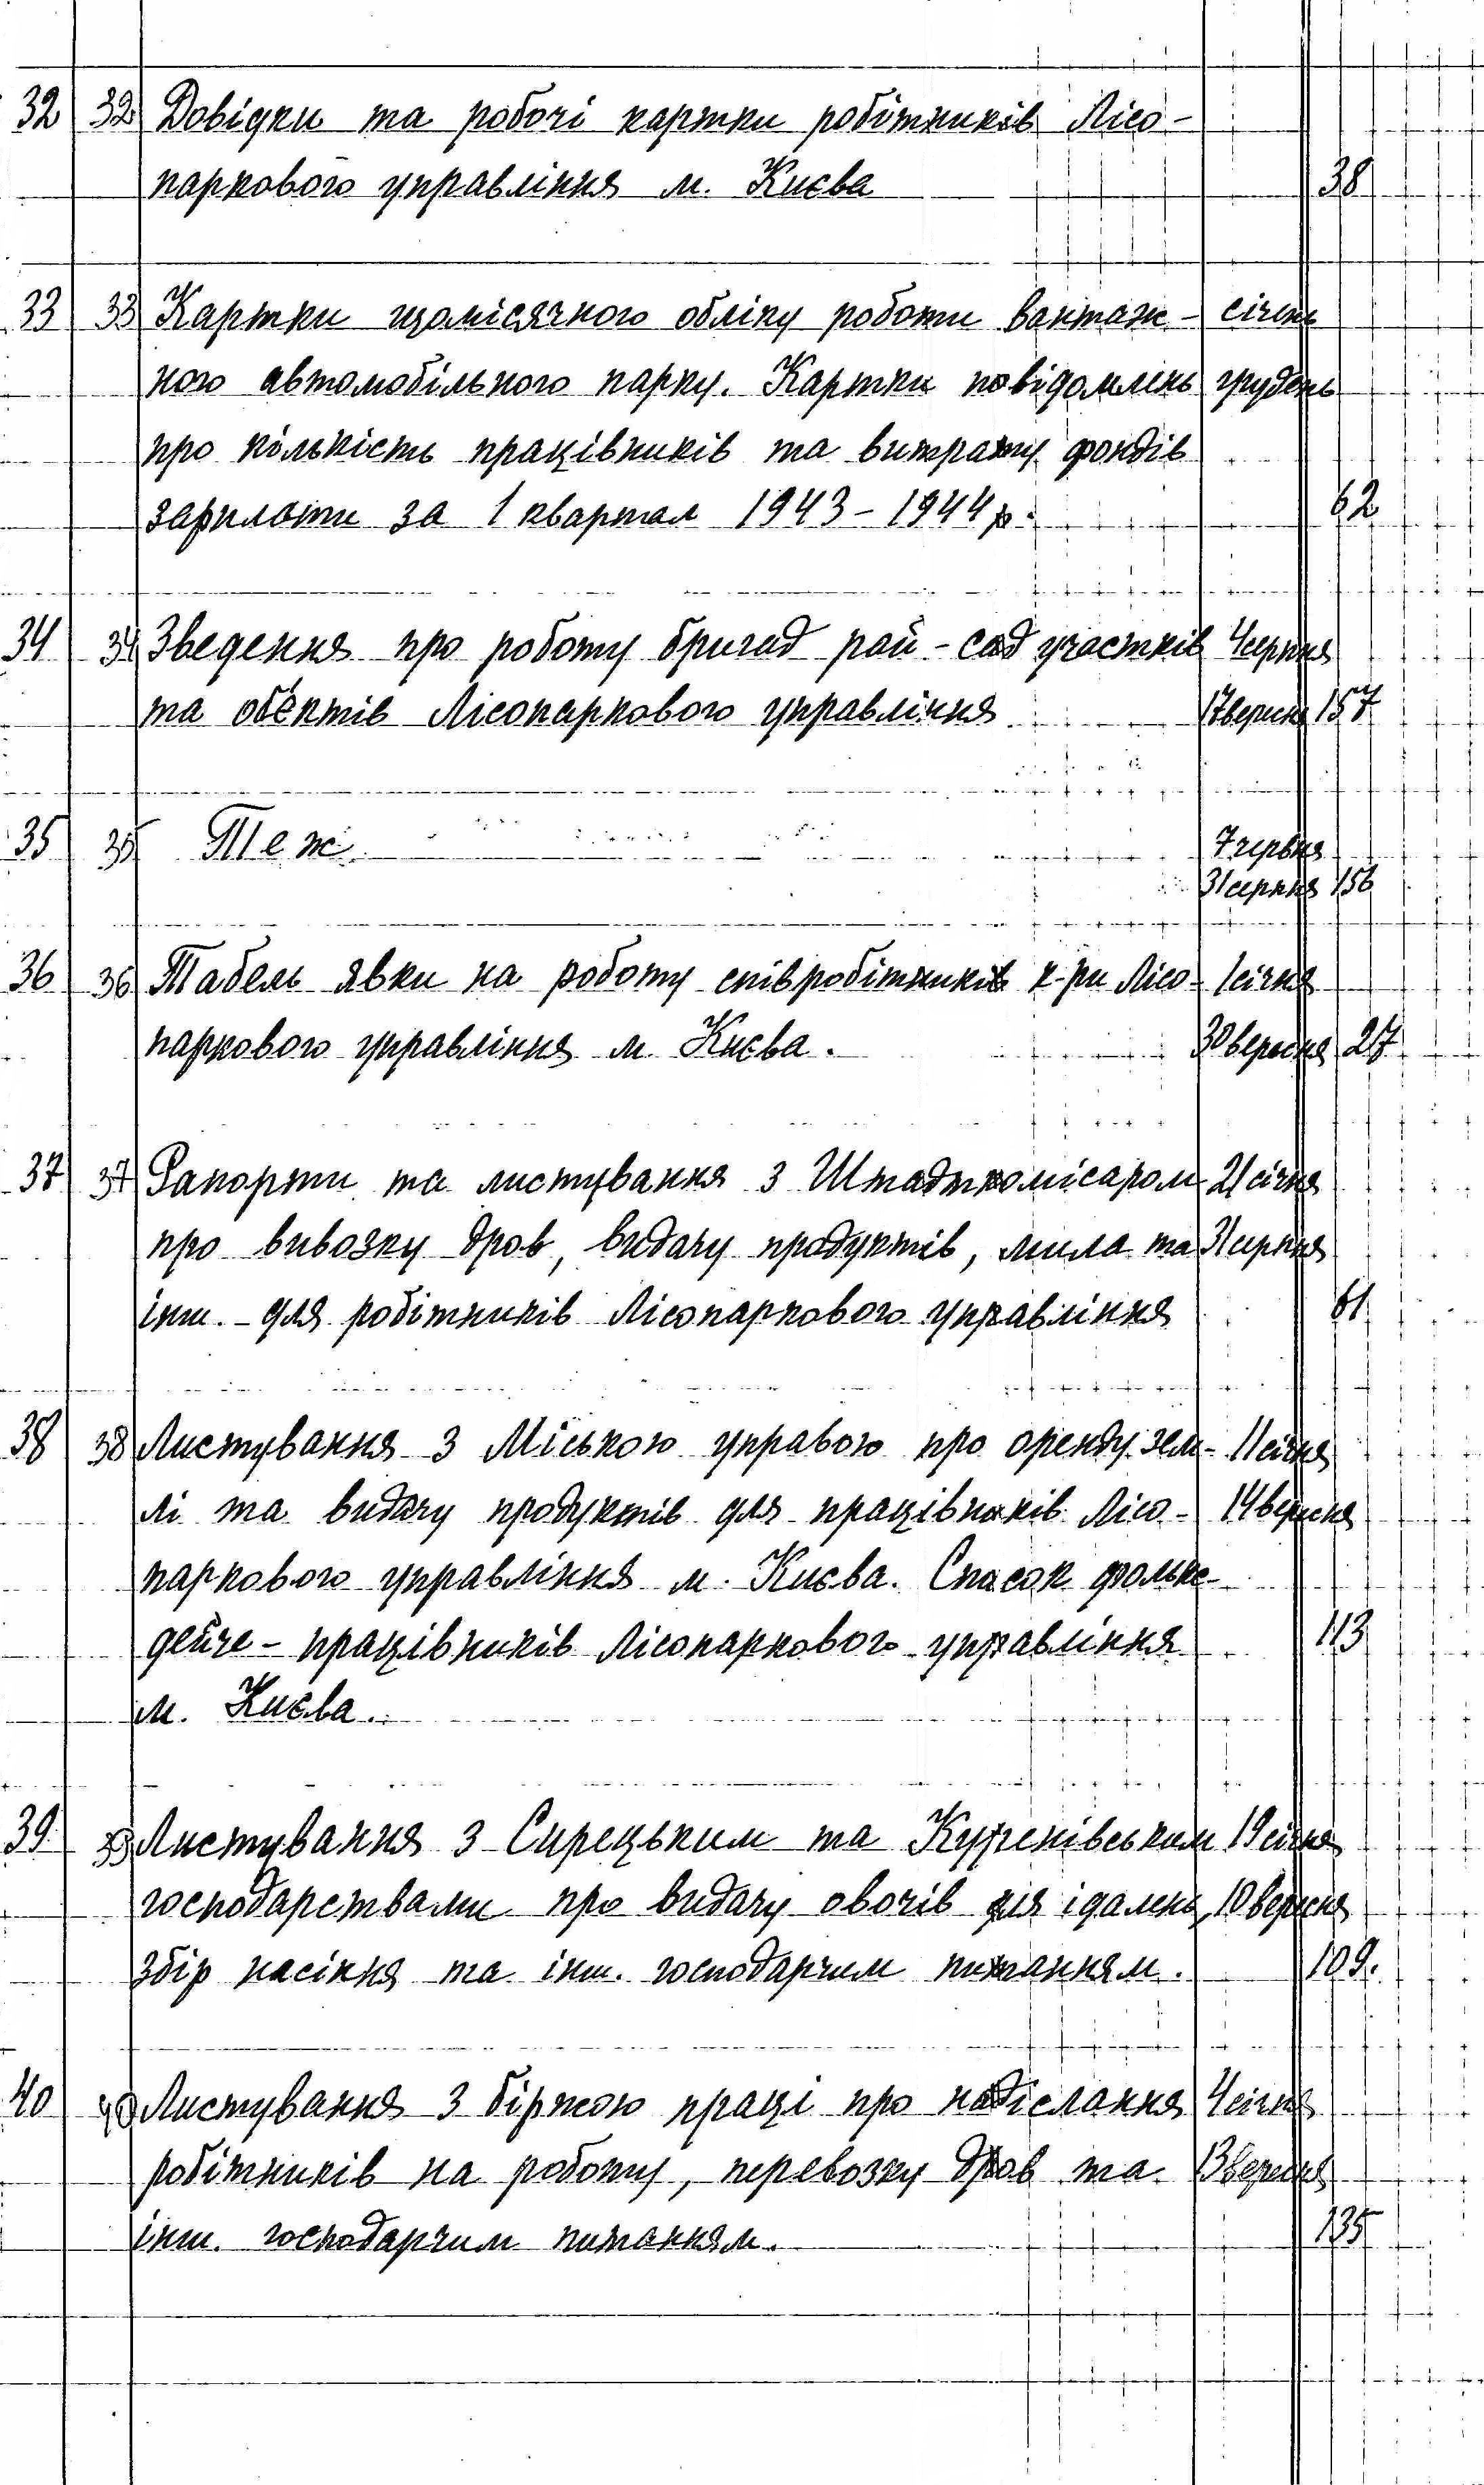 32 32 Довідки та робочі картки робітників Лісо-
паркового управління м. Києва 38
33 33 Картки щомісячного обліку роботи вантаж- січень
ного автомобільного парку. Картки повідомлень грудень
про кількість працівників та витрату фондів
зарплати за 1 квартал 1943-1944 р. 62
34 34 Зведення про роботу бригад рай-сад участків
та об'єктів Лісопаркового управління 157
35 35 Теж 7 червня
31 серпня 156
36 36 Табель явки на роботу співробітників к-ри Лісо- 1 січня
паркового управління м. Києва. 30 вересня 27
37 37 Рапорти та листування з Штадткомісаром 21 січня
про вивозку дров, видачу продуктів, мила та 31 серпня
інш. - для робітників Лісопаркового управління 61
38 38 Листування з Міською управою про оренду зем- 11 січня
лі та видачу продуктів для працівників Лісо- 14 вересня
паркового управління м. Києва. Список фольке-
дейче - працівників Лісопаркового управління 113
м. Києва.
39 39 Листування з Сирецьким та Куренівським 19 січня
господарствами про видачу овочів для їдалень, 10 вересня
збір насіння та інш. господарчим питанням. 109.
40 40 Листування з біржою праці про надіслання 4 січня
робітників на роботу, перевозку дров та 13 вересня
інш. господарчим питанням. 135